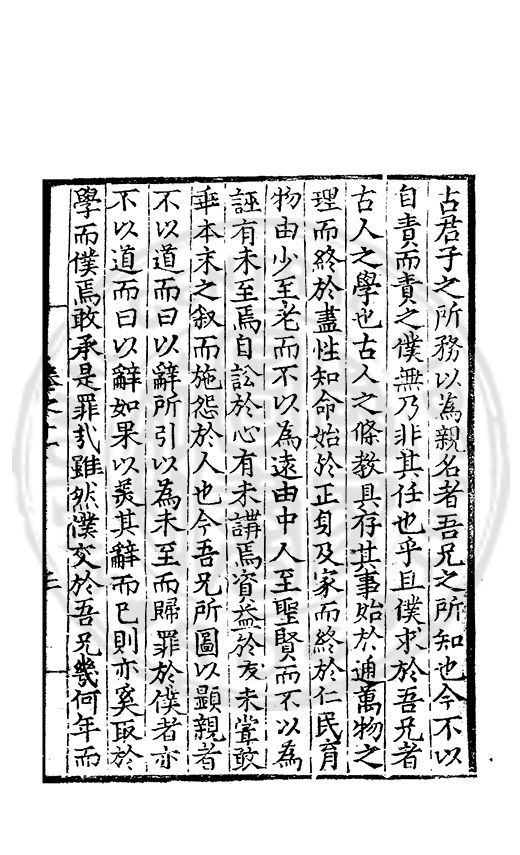 古君子之所務以為親名者吾兄之所知也今不以
自責而責之僕無乃非其任也乎且僕求於吾兄者
古人之學也古人之條教具存其事始於通萬物之
理而終於盡性知命始於正身及家而終於仁民育
物由少至老而不以為遠由中人至聖賢而不以為
誣有未至焉自訟於心有未講焉資益於友未甞敢
乖本末之叙而施怨於人也今吾兄所圖以顯親者
不以道而曰以辭所引以為未至而歸罪於僕者亦
不以道而曰以辭如果以羙其辭而已則亦奚取於
學而僕焉敢承是罪㢤雖然僕交於吾兄幾何年而